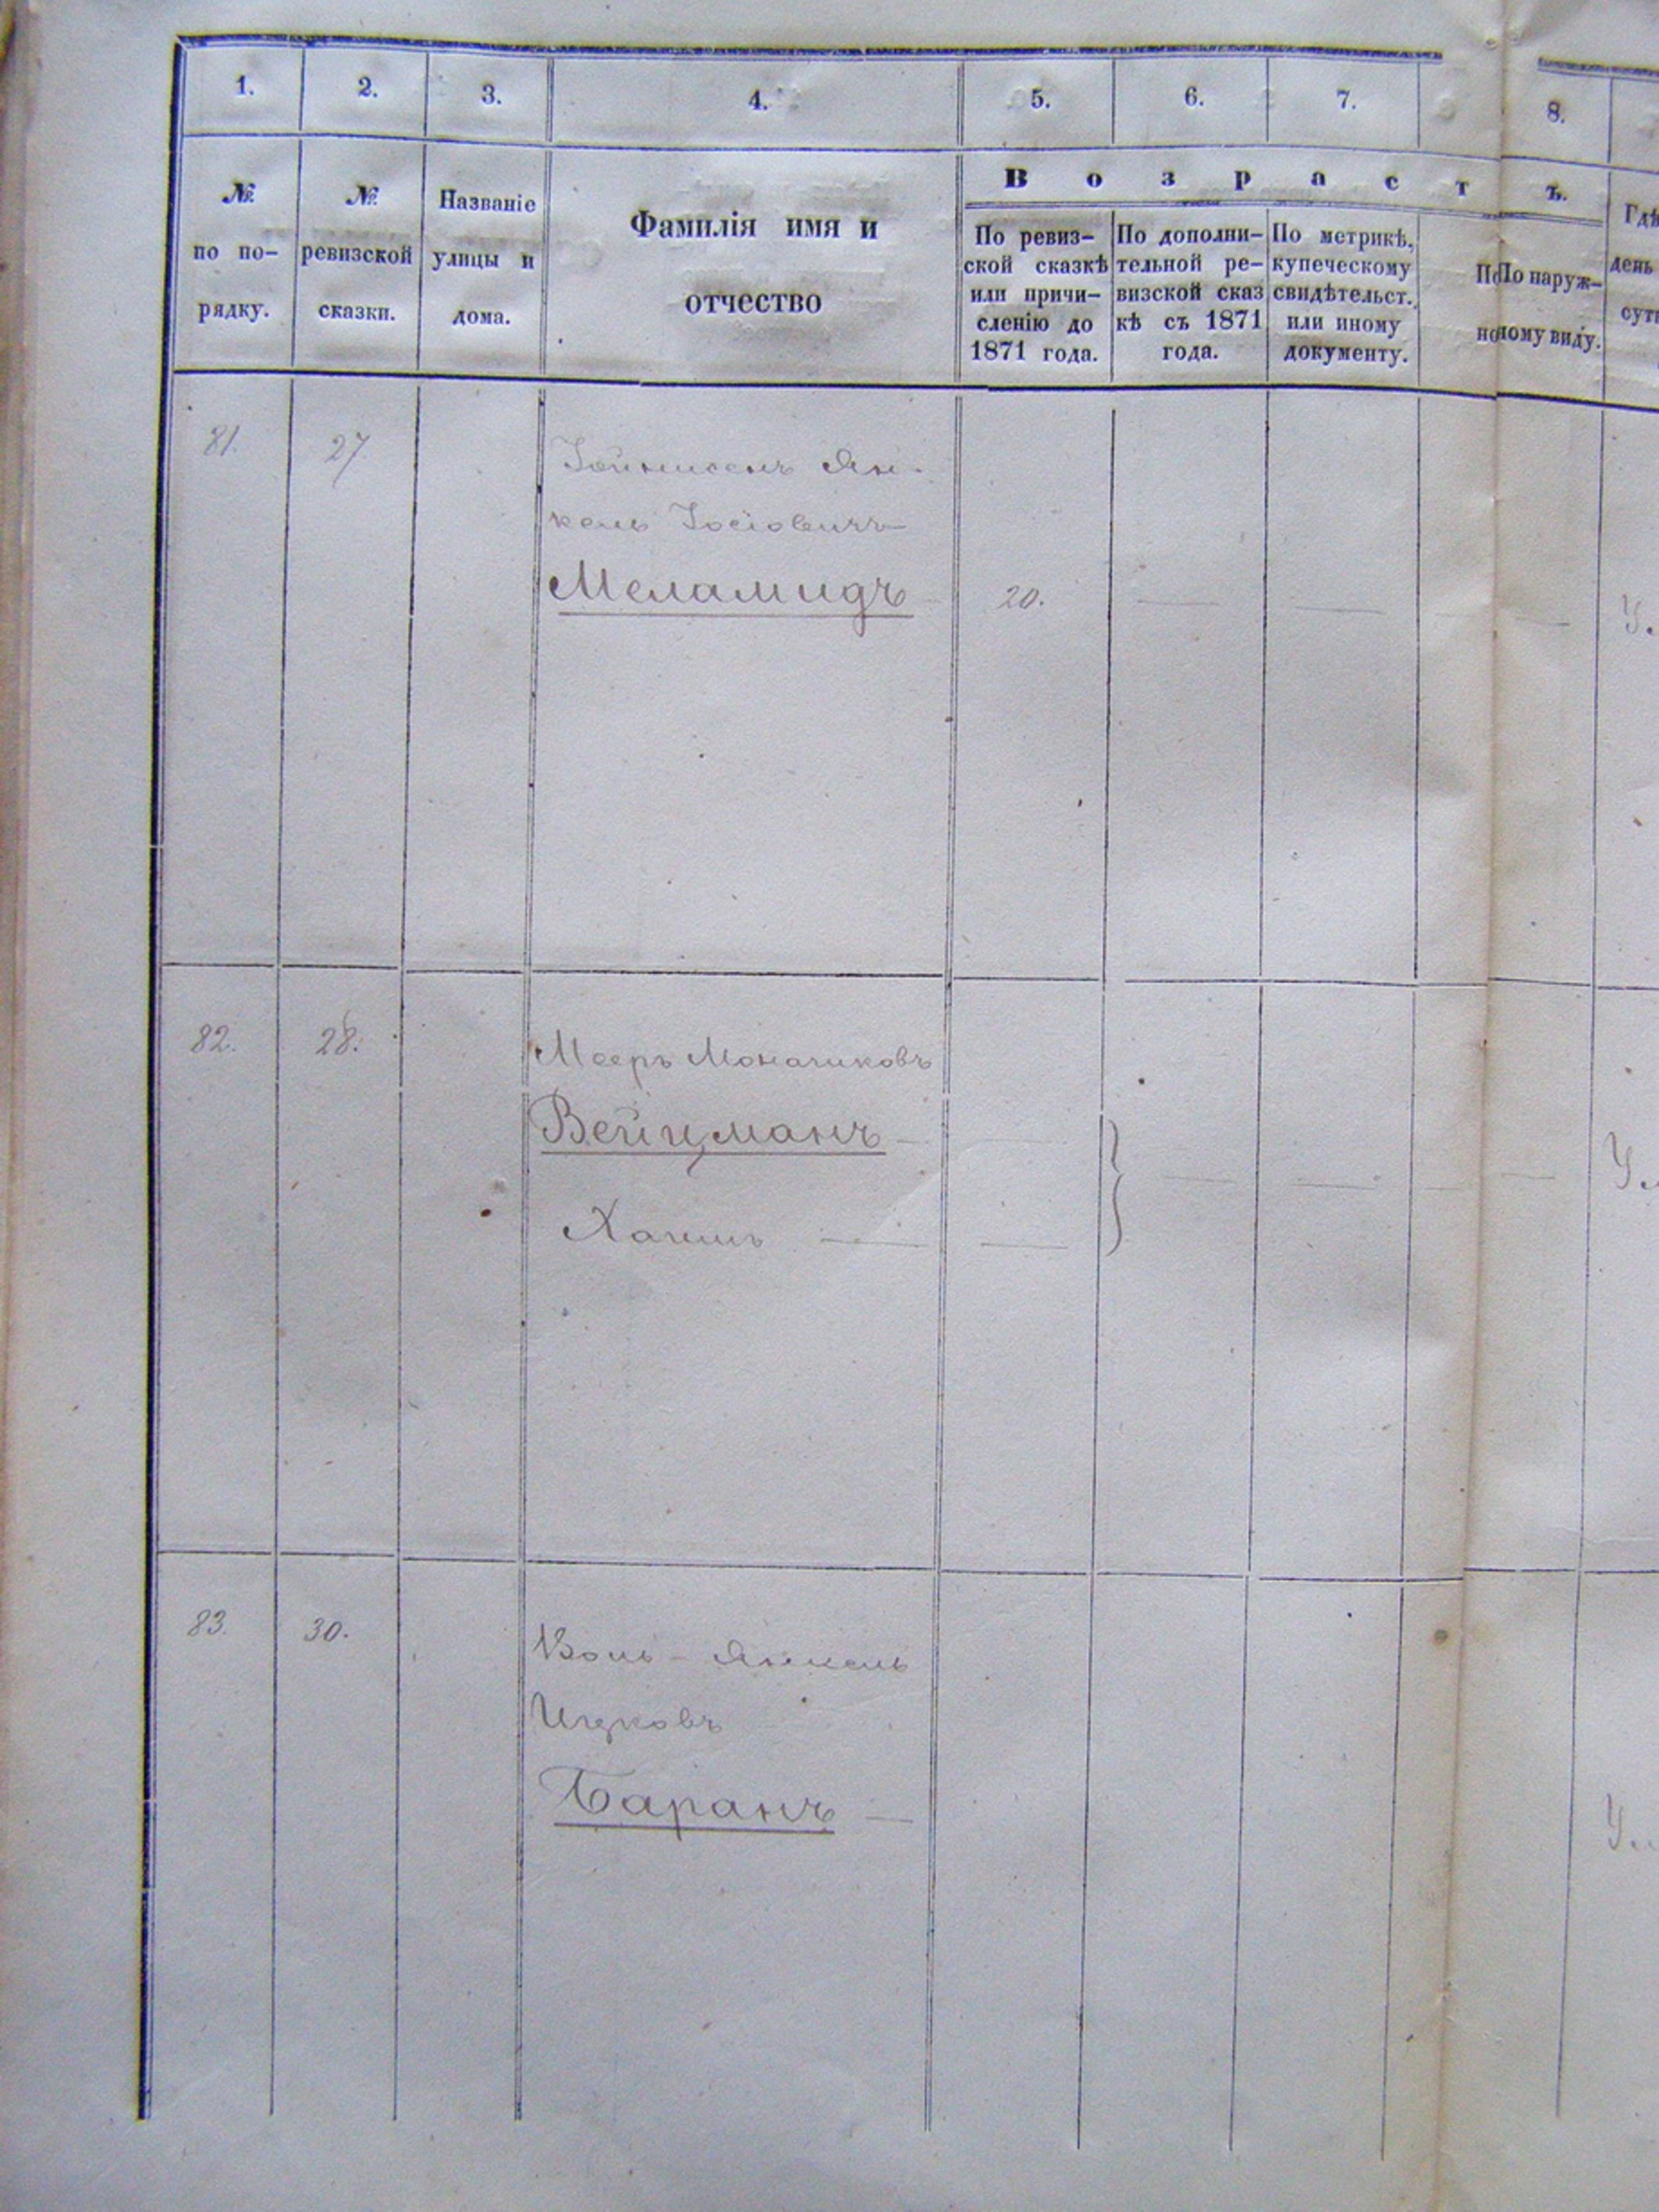 1. 2. 3. 4. 5. 6. 7. 8.
№ по по-рядку.
№ ревизской сказки.
Названіе улицы и дома.
Фамилія имя и отчество
Возрастъ.
По ревиз-
ской сказкѣ
или причи-
сленію до
1871 года.
По дополни-
тельной ре-
визской сказ
кѣ съ 1871
года.
По метрикѣ,
купеческому
свидѣтельст.
или иному
документу.
По наруж-
ному виду.
Гдѣ
день
81. 27. Ян-
кель
Меламидъ 20.
82. 28. Мееръ
Вейцманъ
83. 30. Янкель
Ицковъ
Баранъ